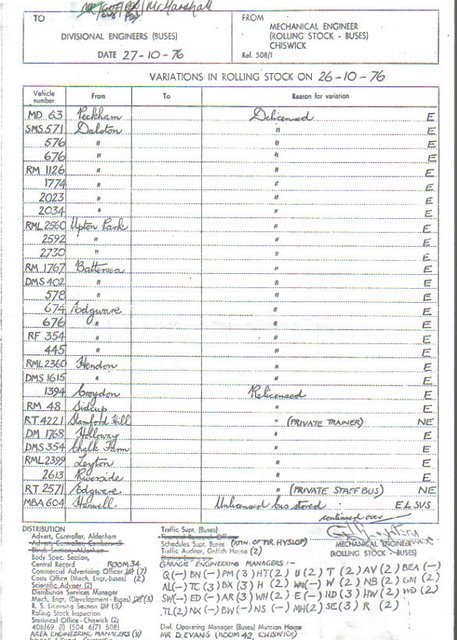 Mr Marshall
TO
FROM
MECHANICAL ENGINEER
(ROLLING STOCK - BUSES)
CHISWICK
DIVISIONAL ENGINEERS (BUSES)
DATE 27-10-76
Ref. 508/1
VARIATIONS IN ROLLING STOCK ON 26-10-76
Vehicle number From To Reason for variation
MD 63 Peckham Delicensed E
SMS 571 Dalston " E
576 " " E
676 " " E
RM 1126 " " E
1774 " " E
2023 " " E
2034 " " E
RML 2560 Upton Park " E
2592 " " E
2730 " " E
RM 1767 Battersea " E
DMS 402 " " E
578 " " E
674 Edgware " E
676 " " E
RF 354 " " E
445 " " E
RML 2360 Hendon " E
DMS 1615 " " E
1394 Croydon Relicensed E
RM 48 Sidcup " E
RT 4221 Stamford Hill " (PRIVATE TRAINER) NE
DM 1768 Holloway " E
DMS 354 Chalk Farm " E
RML 2399 Leyton " E
2613 Riverside " E
RT 2571 Edgware " (PRIVATE STAFF BUS) NE
MBA 604 Hanwell Unlicensed bus stored : E L SVS
continued over
MECHANICAL ENGINEER
(ROLLING STOCK - BUSES)
DISTRIBUTION
Advert. Controller, Aldenham
Body Spec. Section,
Central Record ROOM 34
Commercial Advertising Officer (7)
Costs Office (Mech. Engr.-Buses) (2)
Scientific Adviser (2)
Distribution Services Manager
Mech. Engr. (Development - Buses) (3)
R. S. Licensing Section (5)
Rolling Stock Inspection
Statistical Office - Chiswick (2)
408/69 (1) 504 6/71 508)
AREA ENGINEERING MANAGERS (9)
Traffic Supt. (Buses)
Schedules Supt. Buses (ATTN. OF MR. HYSLOP)
Traffic Auditor, Griffith House (2)
GARAGE ENGINEERING MANAGERS :-
Q (-) BN (-) PM (3) HT (2) U (2) T (2) AV (2) BEA (-)
AL (-) TC (3) BX (3) H (2) W (2) NB (2) GM (2)
SW (-) ED (-) AR (3) WH (2) E (-) HD (3) HW (2) WD (2)
TL (2) NX (-) BW (-) NS (-) NH (2) SE (3) R (2)
Div. Operating Manager (Buses) Manson House
MR D. EVANS (ROOM 42, CHISWICK)